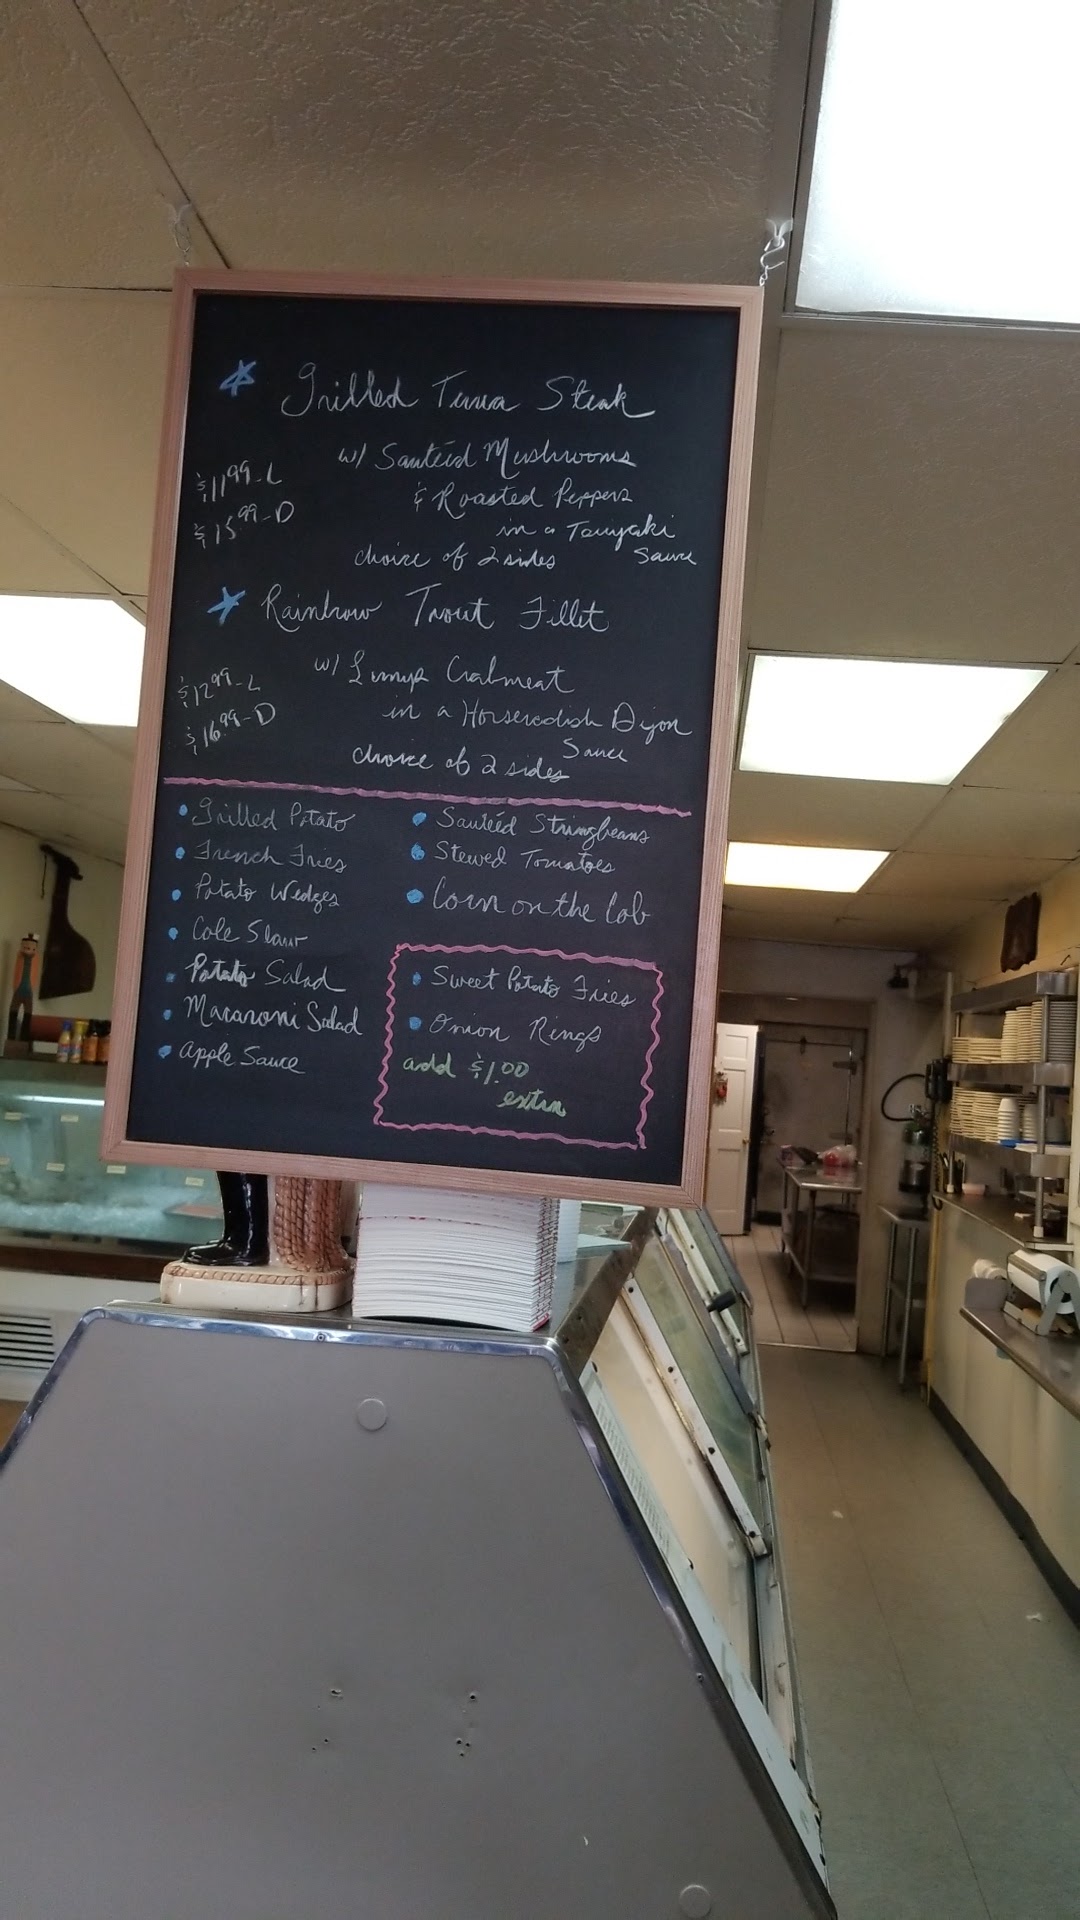 Grilled Tuna Steak
w/ Sauteéd Mushrooms
$11.99-L
& Roasted Peppers
$15.99-D
in a Teriyaki
Sauce
choice of 2 sides
Rainbow Trout Fillet
w/ Lump Crabmeat
$12.99-L
in a Horseradish Dijon
$16.99-D
Sauce
choice of 2 sides
• Grilled Potato
• French Fries
• Potato Wedges
• Cole Slaw
• Potato Salad
• Macaroni Salad
• Apple Sauce
• Sauteéd Stringbeans
• Stewed Tomatoes
• Corn on the Cob
• Sweet Potato Fries
• Onion Rings
add $1.00
extra